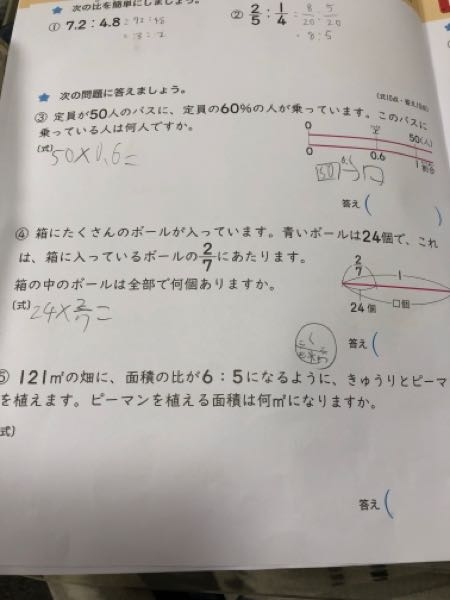 次の比を簡単にしましょう。
① 7.2 : 4.8 = 72 : 48
= 3 : 2
② 2/5 : 1/4 = 8/20 : 5/20
= 8 : 5
★ 次の問題に答えましょう。
③ 定員が50人のバスに、定員の60%の人が乗っています。このバスに
乗っている人は何人ですか。
(式) 50×0.6=
0 50(人)
0 0.6 1 割合
50 → □
答え ( )
④ 箱にたくさんのボールが入っています。青いボールは24個で、これ
は、箱に入っているボールの2/7にあたります。
箱の中のボールは全部で何個ありますか。
(式) 24×2/7=
2/7 1
24個 □個
答え (
⑤ 121㎡の畑に、面積の比が6:5になるように、きゅうりとピーマ
を植えます。ピーマンを植える面積は何㎡になりますか。
式)
答え (